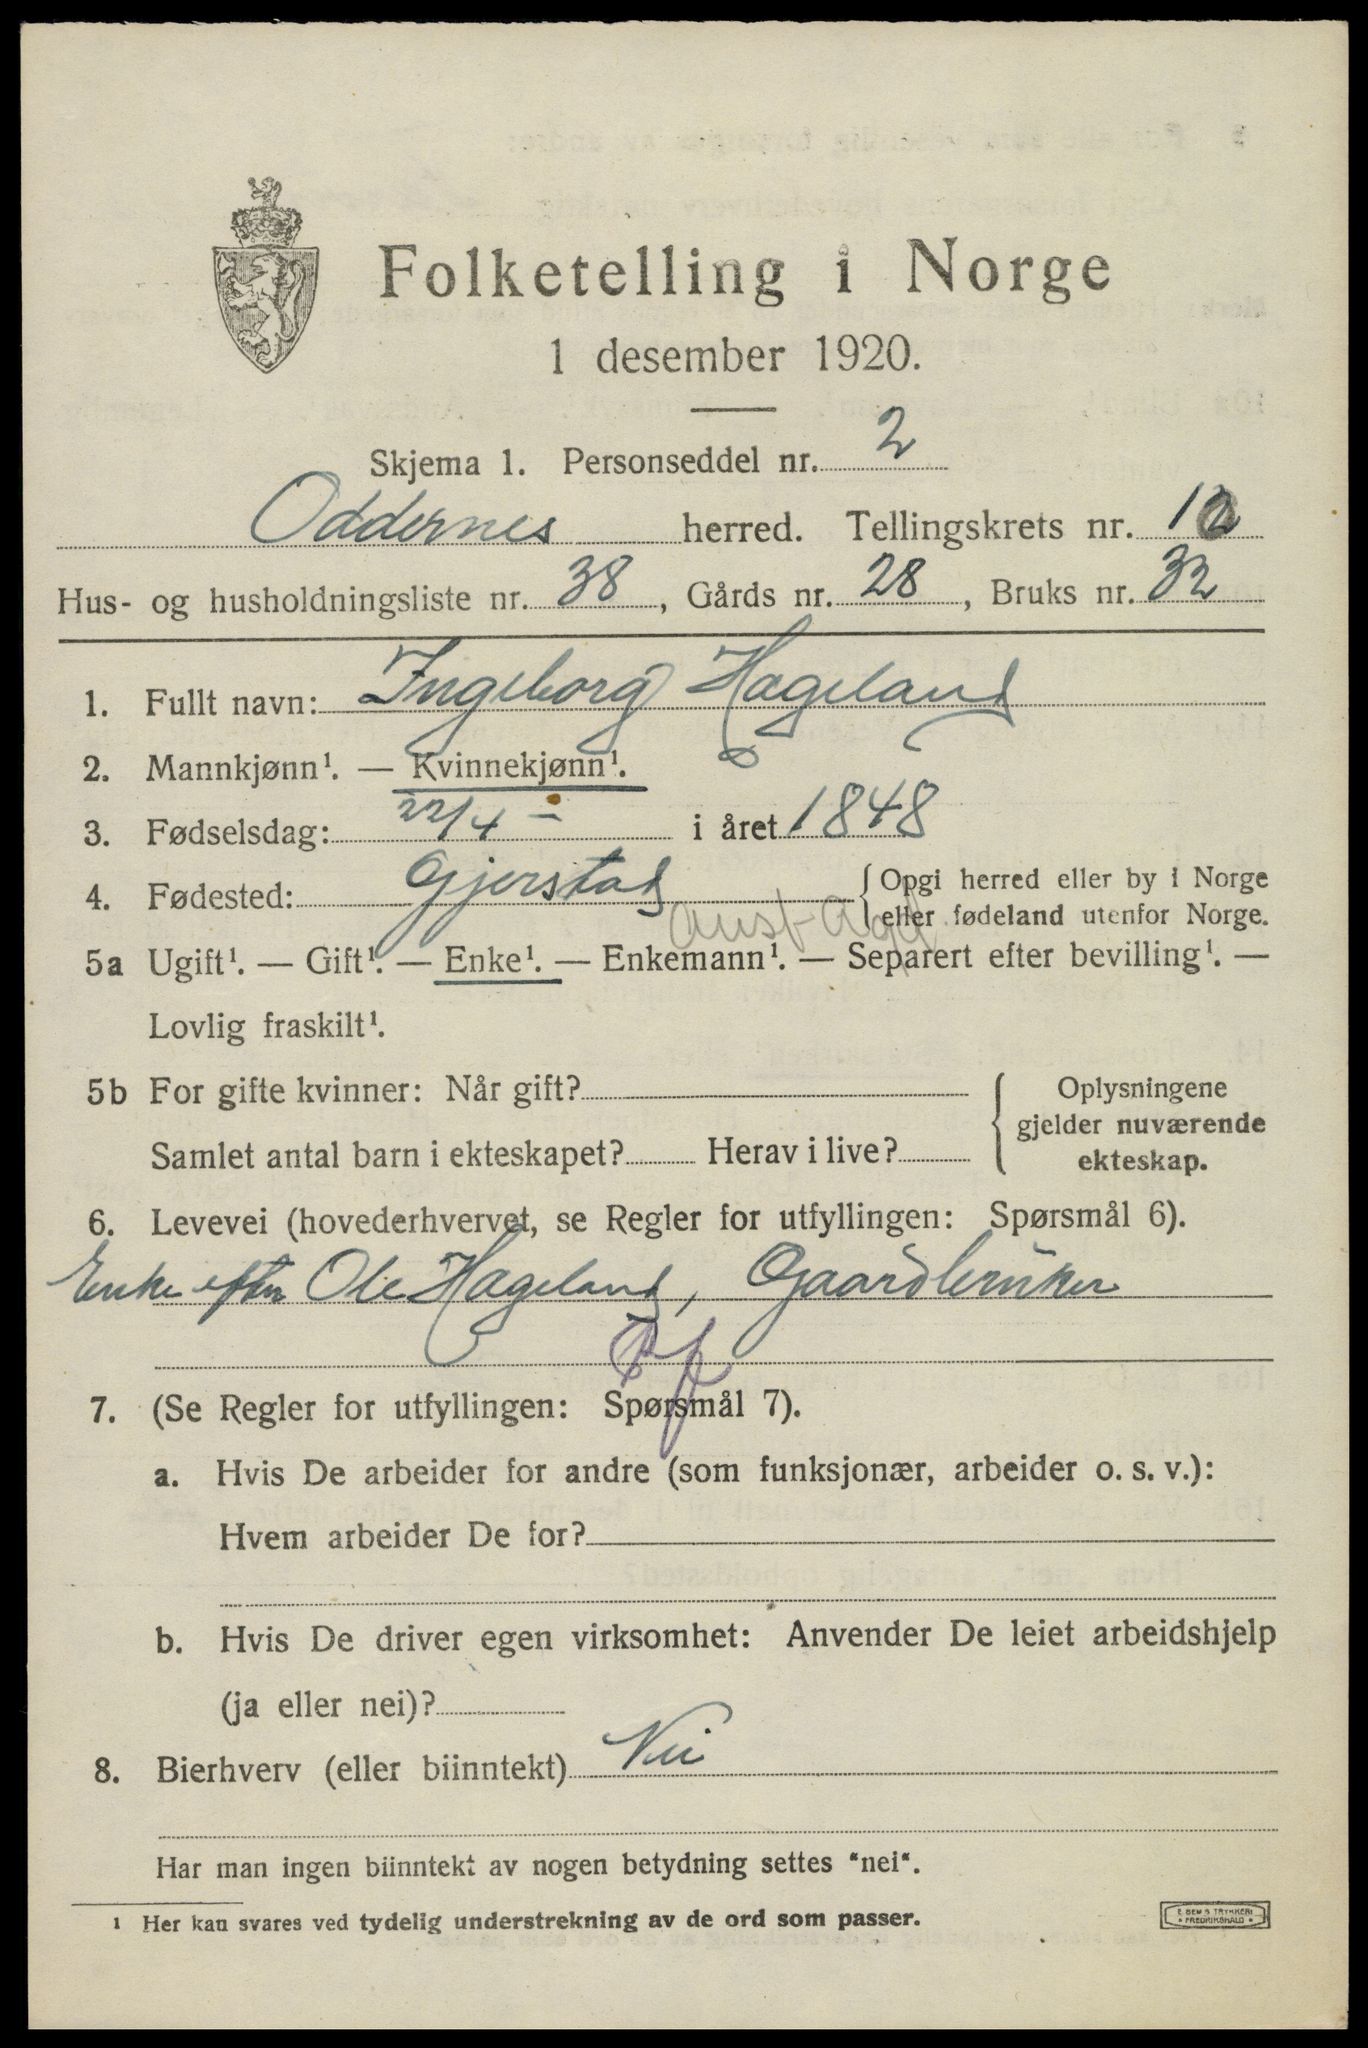 Folketelling i Norge
1 desember 1920.
Skjema 1. Personseddel nr. 2
Oddernes herred. Tellingskrets nr. 12
Hus- og husholdningsliste nr. 38, Gårds nr. 28, Bruks nr. 32
1. Fullt navn: Ingeborg Hageland
2. Mannkjønn¹. — Kvinnekjønn¹.
3. Fødselsdag: 22/4 – i året 1848
4. Fødested: Gjerstad { Opgi herred eller by i Norge
eller fødeland utenfor Norge.
Aust-Agd
5a Ugift¹. — Gift¹. — Enke¹. — Enkemann¹. — Separert efter bevilling¹. —
Lovlig fraskilt¹.
5b For gifte kvinner: Når gift? { Oplysningene
gjelder nuværende
Samlet antal barn i ekteskapet? Herav i live? ekteskap.
6. Levevei (hovederhvervet, se Regler for utfyllingen: Spørsmål 6).
Enke efter Ole Hageland, Gaardbruker
7. (Se Regler for utfyllingen: Spørsmål 7).
a. Hvis De arbeider for andre (som funksjonær, arbeider o. s. v.):
Hvem arbeider De for?
b. Hvis De driver egen virksomhet: Anvender De leiet arbeidshjelp
(ja eller nei)?
8. Bierhverv (eller biinntekt) Nei
Har man ingen biinntekt av nogen betydning settes "nei".
¹ Her kan svares ved tydelig understrekning av de ord som passer.
E. SEM'S TRYKKERI
FREDRIKSHALD